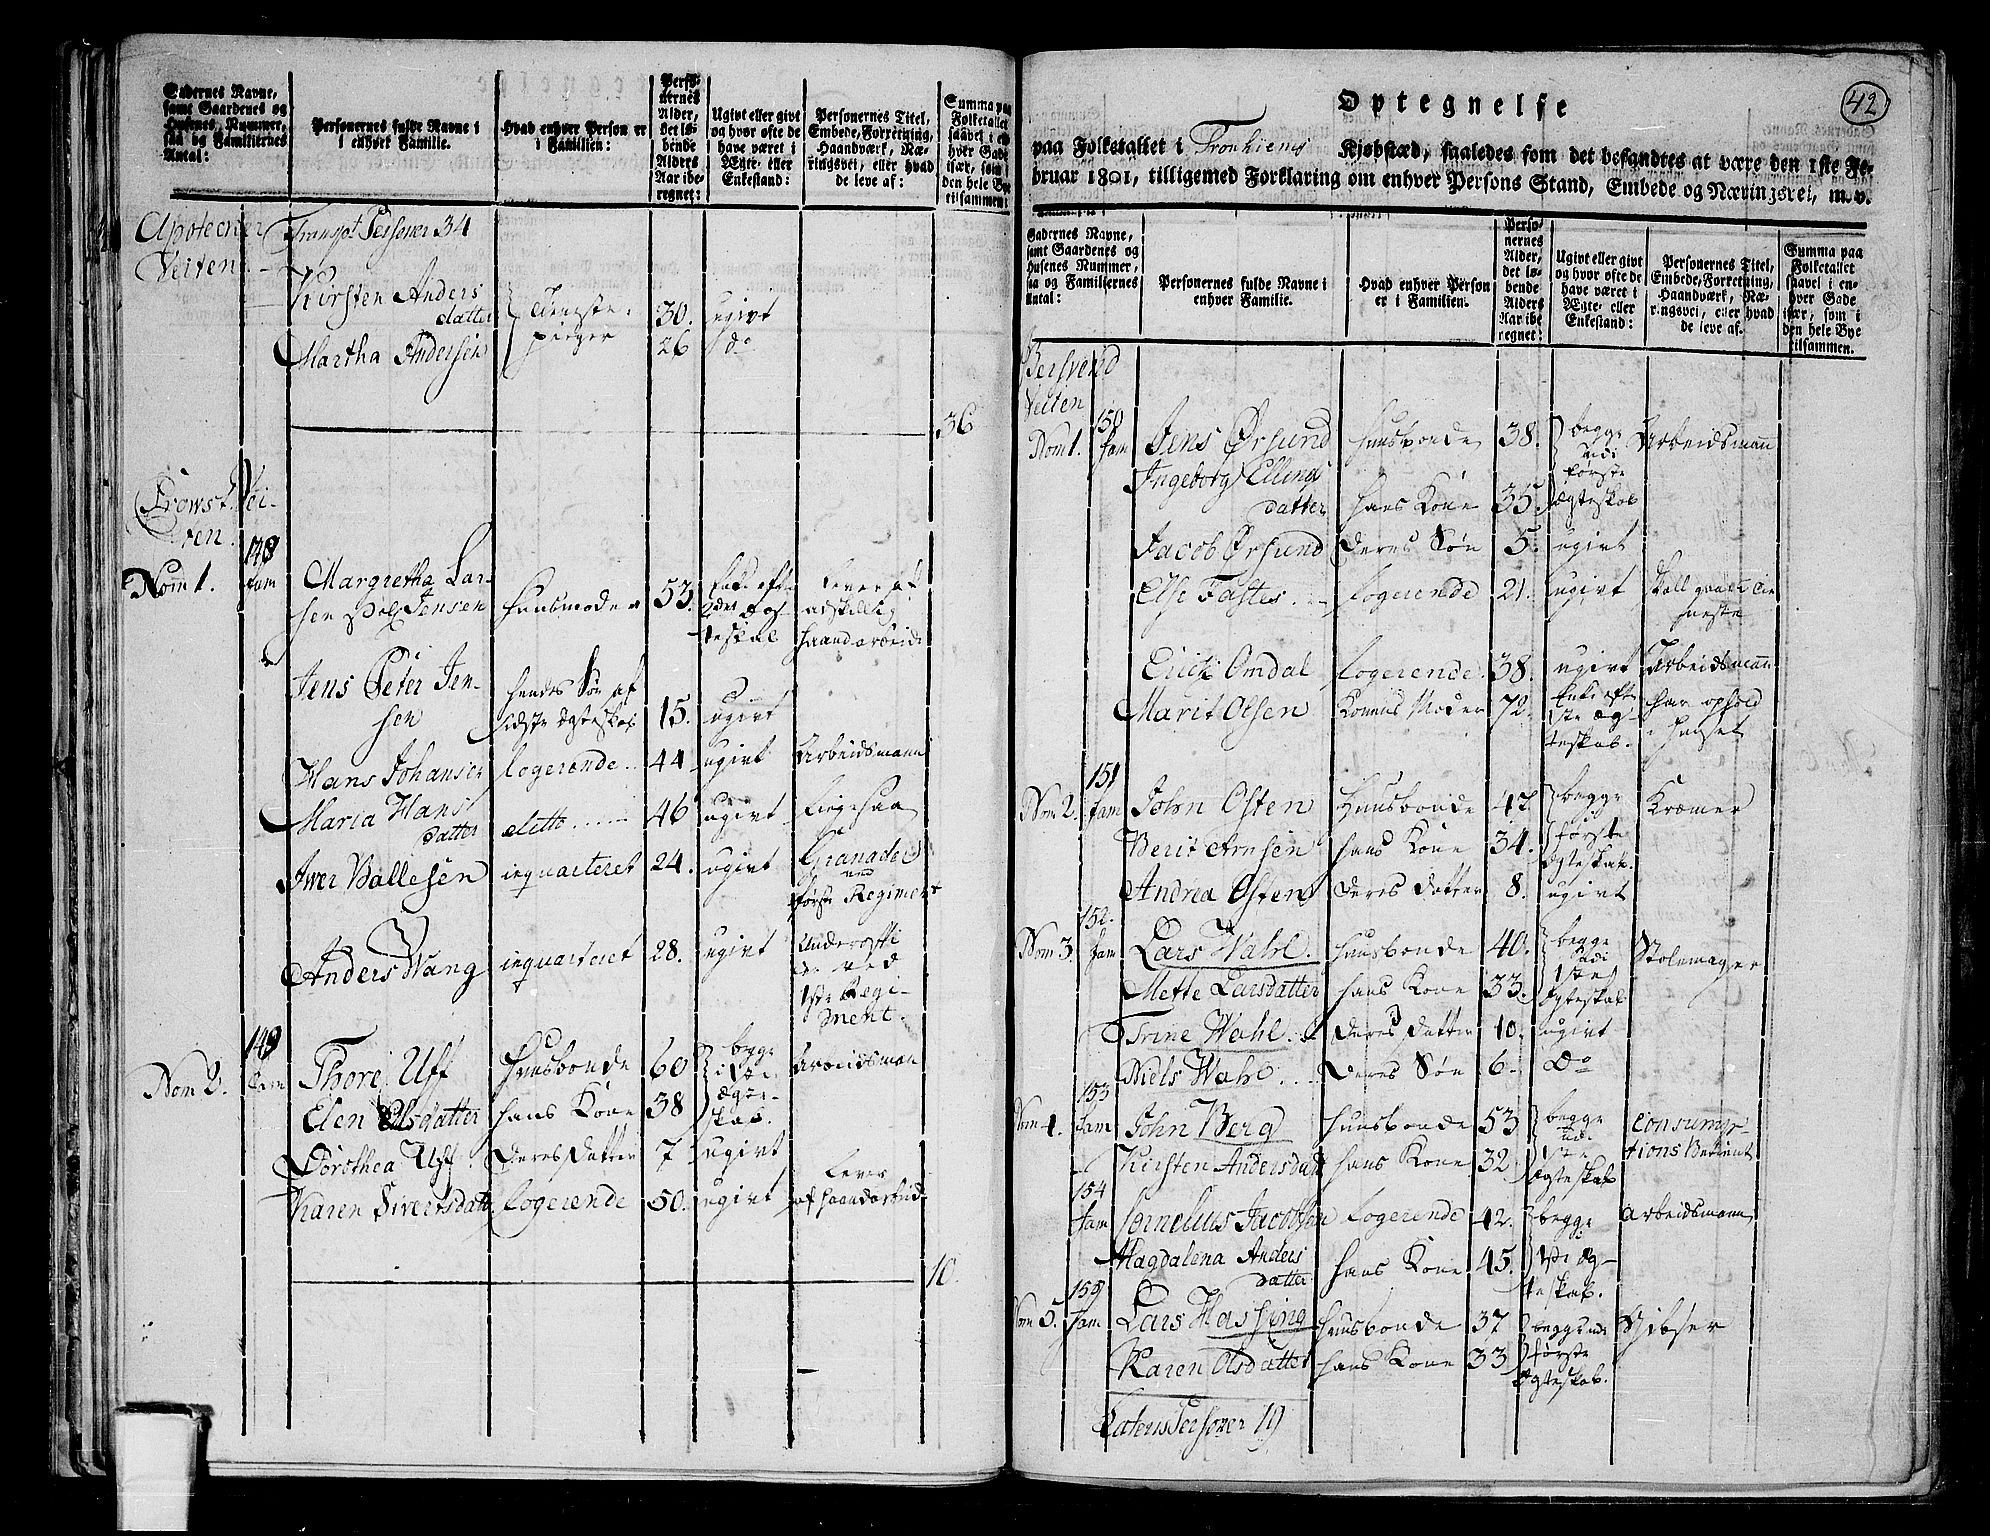 Gadernes Navne,
samt Gaardenes og
Husenes Nummer,
saa og Familiernes
Antal:
Personernes fulde Navne i
i enhver Familie.
Hvad enhver Person er
i Familien:
Perso-
nernes
Alder,
det lø-
bende
Alders
Aar ibe-
regnet:
Ugivt eller givt
og hvor ofte de
have været i
Ægte- eller
Enkestand:
Personernes Titel,
Embede, Forretning,
Haandværk, Næ-
ringsvei, eller hvad
de leve af:
Summa paa
Folketallet
saavel i en-
hver Gade
især, som i
den hele Bye
tilsammen.
Apotecker Transpt Personer 34
Veiten
Kirsten Anders
datter Tieneste- 30. ugivt
Martha Andersen piger 26 do
36
Prowst Vei-
ten.
148
Nom 1. fam Margretha Lar-
sen sal. Jensen Huusmoder 53. Enke efter
2det Æg-
teskab
Lever af
adskillig
haandarbeide
Jens Peter Jen-
sen hendes Søn af
sidste Ægteskab 15. ugivt
Hans Johansen logerende 44 ugivt Arbeidsmann
Maria Hans
datter ditto 46 ugivt Ligesaa
Iwer Ballesen inqvarteret 24. ugivt Granadeer
ved
første Regiment
Anders Wang inqvarteret 28. ugivt Underoffi
cer ved
1ste Regi-
ment.
149
Nom 2. fam Thore Uff Huusbonde 60 begge
i 1ste
Ægte-
skab.
Arbeidsman
Elen Olsdatter hans Kone 38
Dorothea Uff Deres Datter 7 ugivt
Karen Sivertsdatt logerende 50. ugivt Lever
af haandarbeid
10.
42
Optegnelse
paa Folketallet i Tronhiems Kjøbstæd, saaledes som det befandtes at være den 1ste Fe-
bruar 1801, tilligemed Forklaring om enhver Persons Stand, Embede og Næringsvei, m. v.
Gadernes Navne,
samt Gaardenes og
Husenes Nummer,
saa og Familiernes
Antal:
Personernes fulde Navne i
enhver Familie.
Hvad enhver Person
er i Familien.
Perso-
nernes
Alder,
det lø-
bende
Alders
Aar ibe-
regnet:
Ugivt eller givt
og hvor ofte de
have været i
Ægte- eller
Enkestand:
Personernes Titel,
Embede, Forretning,
Haandværk, Næ-
ringsvei, eller hvad
de leve af.
Summa paa
Folketallet
saavel i en-
hver Gade
især, som i
den hele Bye
tilsammen.
Bersvend
Veiten
150
Nom 1. fam Jens Ørsund Huusbonde 38. begge
udi
første
Ægteskab
Arbeidsmann
Ingeborg Ellings
datter hans Kone 35.
Jacob Ørsund Deres Søn 5. ugivt
Else Fastes logerende 21. ugivt Skall gaae i Tie
neste
Erich Omdal logerende 38. ugivt Arbeidsmann
Marit Olsen Konens Moder 72. Enke efter
1ste Æg-
teskab.
har ophold
i huset
151
Nom 2. fam John Østen Huusbonde 47. begge
første
Ægteskab.
Kræmer
Berit Arnsen hans Kone 34.
Andrea Østen Deres datter 8. ugivt
152.
Nom 3. fam Lars Wahl. Huusbonde 40. begge
udi
1ste
Ægteskab
Stolemager
Mette Larsdatter hans Kone 33.
Trine Wahl Deres datter 10. ugivt
Niels Wahl Deres Søn 6. Do
153
Nom 4. fam John Berg Huusbonde 53 begge
ud.
1ste
Ægteskab
Consump-
tions Betient
Kirsten Andersdatt hans Kone 32
154
fam Cornelius Jacobsen logerende 42. begge
1ste Æg-
teskab.
Arbeidsmann
Magdalena Anders
datter hans Kone 45.
155
Nom 5. fam Lars Hassing Huusbonde 37 begge udi
første
Ægteskab.
Karen Olsdatter hans Kone 33
Laters Personer 19